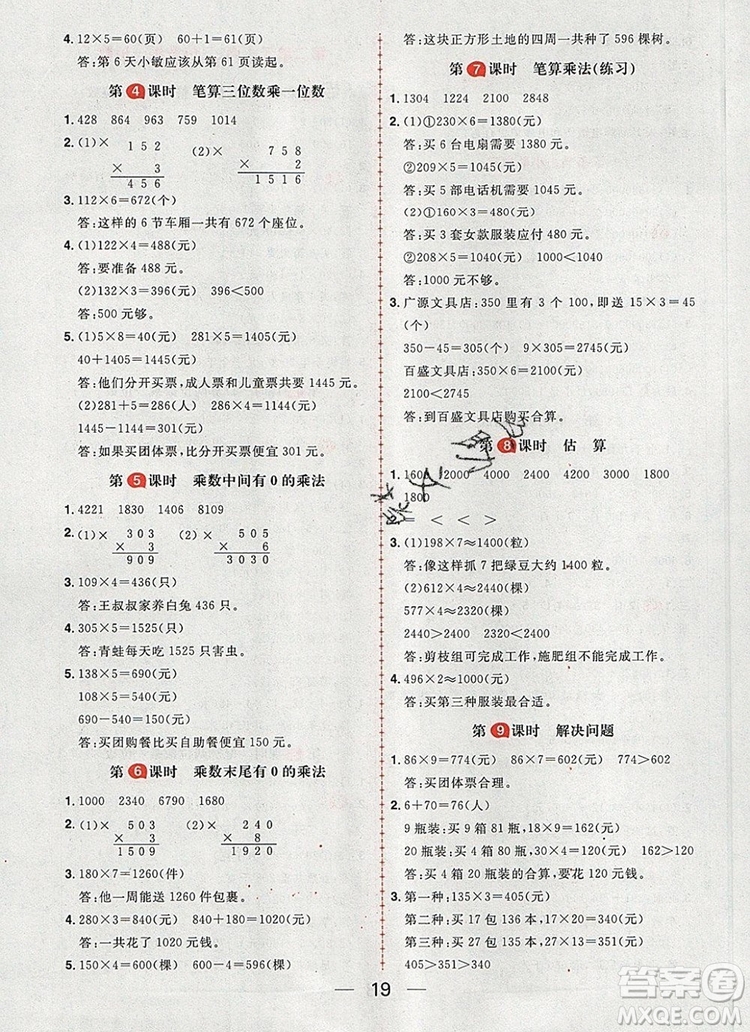 4. 12×5=60(页)  60+1=61(页)
答:第 6 天小敏应该从第 61 页读起。
第 4 课时  笔算三位数乘一位数
1. 428  864  963  759  1014
2. (1)×  1 5 2  (2)×  7 5 8
×  3  ×  2
4 5 6  1 5 1 6
3. 112×6=672(个)
答:这样的 6 节车厢一共有 672 个座位。
4. (1)122×4=488(元)
答:要准备 488 元。
(2)132×3=396(元)  396<500
答:500 元够。
5. (1)5×8=40(元)  281×5=1405(元)
40+1405=1445(元)
答:他们分开买票,成人票和儿童票共要 1445 元。
(2)281+5=286(人)  286×4=1144(元)
1445-1144=301(元)
答:如果买团体票,比分开买票便宜 301 元。
第 5 课时  乘数中间有 0 的乘法
1. 4221  1830  1408  8109
2. (1)×  3 0 3  (2)×  5 0 5
×  3  ×  6
9 0 9  3 0 3 0
3. 109×4=436(只)
答:王叔叔家养白兔 436 只。
4. 305×5=1525(只)
答:青蛙每天吃 1525 只害虫。
5. 138×5=690(元)
108×5=540(元)
690-540=150(元)
答:买团购餐比买自助餐便宜 150 元。
第 6 课时  乘数末尾有 0 的乘法
1. 1000  2340  6790  1680
2. (1)×  5 0 3  (2)×  2 4 0
×  3  ×  8
1 5 0 9  1 9 2 0
3. 180×7=1260(件)
答:他一周能送 1260 件包裹。
4. 280×3=840(元)  840+180=1020(元)
答:一共花了 1020 元钱。
5. 150×4=600(棵)  600-4=596(棵)
答:这块正方形土地的四周一共种了 596 棵树。
第 7 课时  笔算乘法(练习)
1. 1304  1224  2100  2848
2. (1)①230×6=1380(元)
答:买 6 台电扇需要 1380 元。
②209×5=1045(元)
答:买 5 部电话机需要 1045 元。
(2)①690×3=2070(元)
答:买 3 套女款服装应付 2070 元。
②208×5=1040(元)
答:1000 元不够。
3. 广源文具店:350 里有 3 个 100,即送 15×3=45
(个)
350-45=305(个)  9×305=2745(元)
百盛文具店:350×6=2100(元)
2100<2745
答:到百盛文具店购买合算。
第 8 课时  估  算
1. 1600  12000  4000  2400  4200  4000
1800
=  <  <  >
3. (1)198×7≈1400(粒)
答:像这样抓 7 把绿豆大约 1400 粒。
(2)612×4≈2440(棵)
577×4≈2320(棵)
2440>2400  2320<2400
答:剪枝组可完成工作,施肥组不能完成工作。
4. 496×2≈1000(元)
答:买第三种服装最合适。
第 9 课时  解决问题
1. 86×9=774(元)  86×7=602(元)  774>602
答:买团体票合理。
2. 6+70=76(人)
9 瓶装:买 9 箱 81 瓶,18×9=162(元)
20 瓶装:买 4 箱 80 瓶,30×4=120(元)  162>120
答:买 20 瓶装的合算,要花 120 元。
3. 第一种:135×3=405(元)
第二种:买 17 包 136 本,17×20=340(元)
第三种:买 27 包 135 本,27×10=270(元)
405>340>270
19
答案圈
MXQE.COM